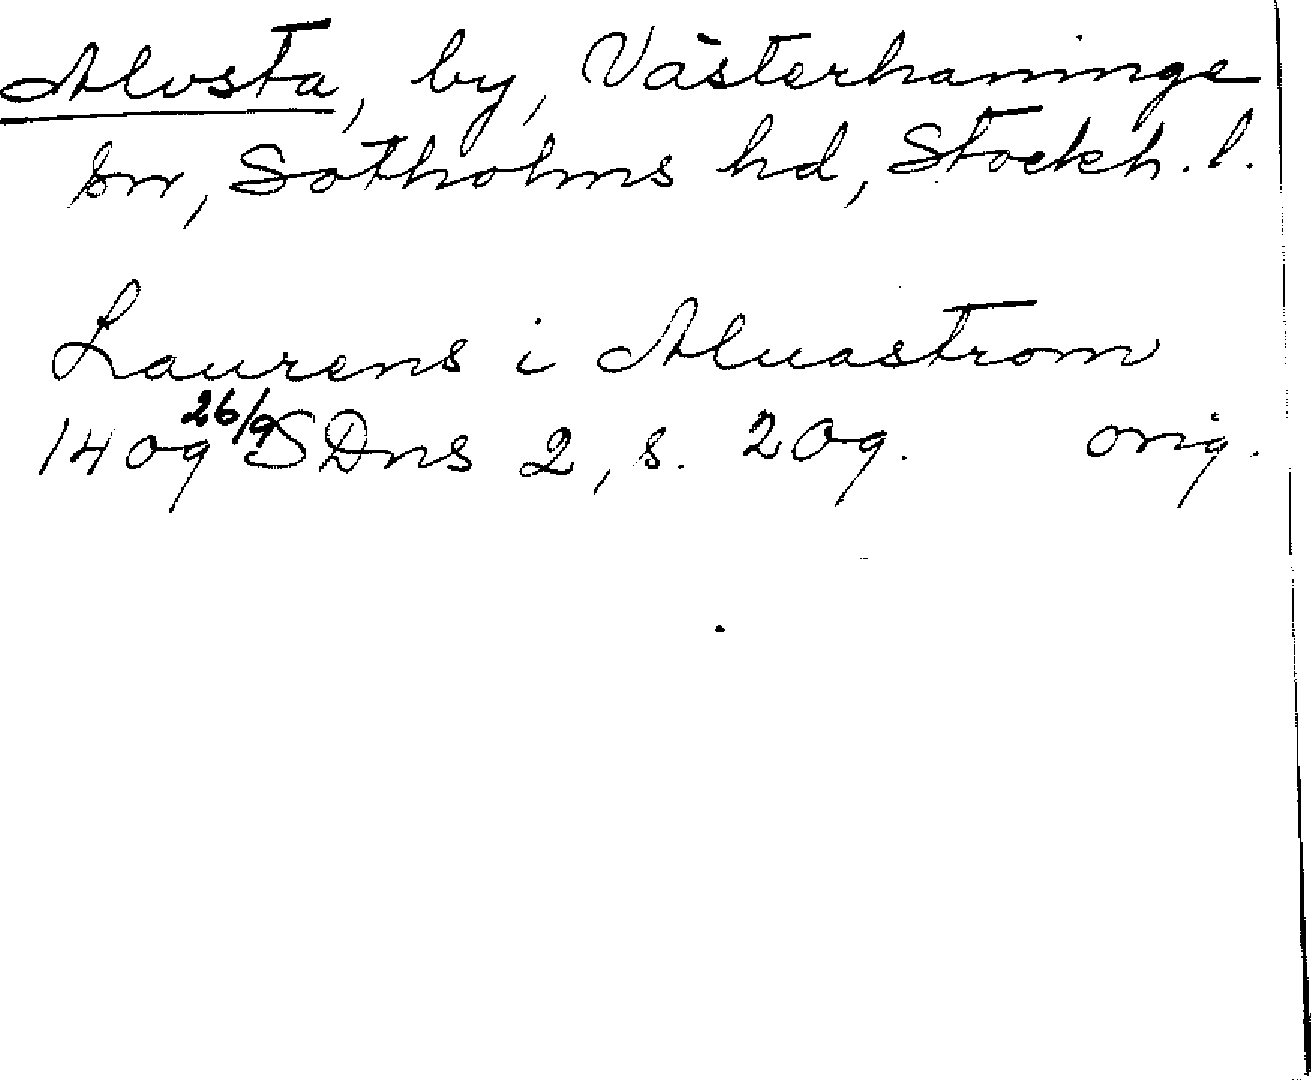 Alvsta, by, Västerhaninge
sn, Sotholms hd, Stockh. l.
Laurens i Aluastrom
1409 26/9 SDns 2, s. 209. orig.